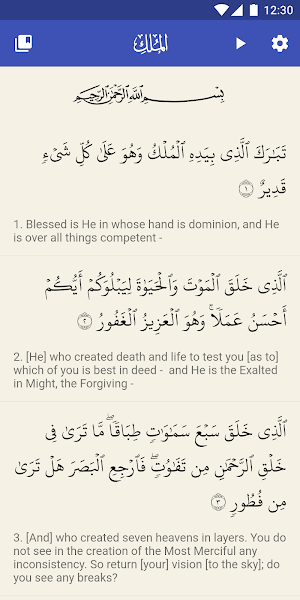 12:30
الملك
بِسْمِ اللَّهِ الرَّحْمَٰنِ الرَّحِيمِ
تَبَٰرَكَ ٱلَّذِى بِيَدِهِ ٱلْمُلْكُ وَهُوَ عَلَىٰ كُلِّ شَىْءٍ
قَدِيرٌ ١
1. Blessed is He in whose hand is dominion, and He
is over all things competent -
ٱلَّذِى خَلَقَ ٱلْمَوْتَ وَٱلْحَيَوٰةَ لِيَبْلُوَكُمْ أَيُّكُمْ
أَحْسَنُ عَمَلًا ۚ وَهُوَ ٱلْعَزِيزُ ٱلْغَفُورُ ٢
2. [He] who created death and life to test you [as to]
which of you is best in deed -  and He is the Exalted
in Might, the Forgiving -
ٱلَّذِى خَلَقَ سَبْعَ سَمَٰوَٰتٍ طِبَاقًا ۖ مَّا تَرَىٰ فِى
خَلْقِ ٱلرَّحْمَٰنِ مِن تَفَٰوُتٍ ۖ فَٱرْجِعِ ٱلْبَصَرَ هَلْ تَرَىٰ
مِن فُطُورٍ ٣
3. [And] who created seven heavens in layers. You do
not see in the creation of the Most Merciful any
inconsistency. So return [your] vision [to the sky]; do
you see any breaks?